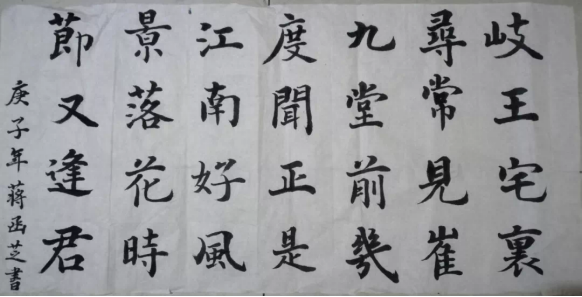 岐王宅裏
尋常見崔
九堂前幾
度聞正是
江南好風
景落花時
節又逢君
庚子年蔣函芝書